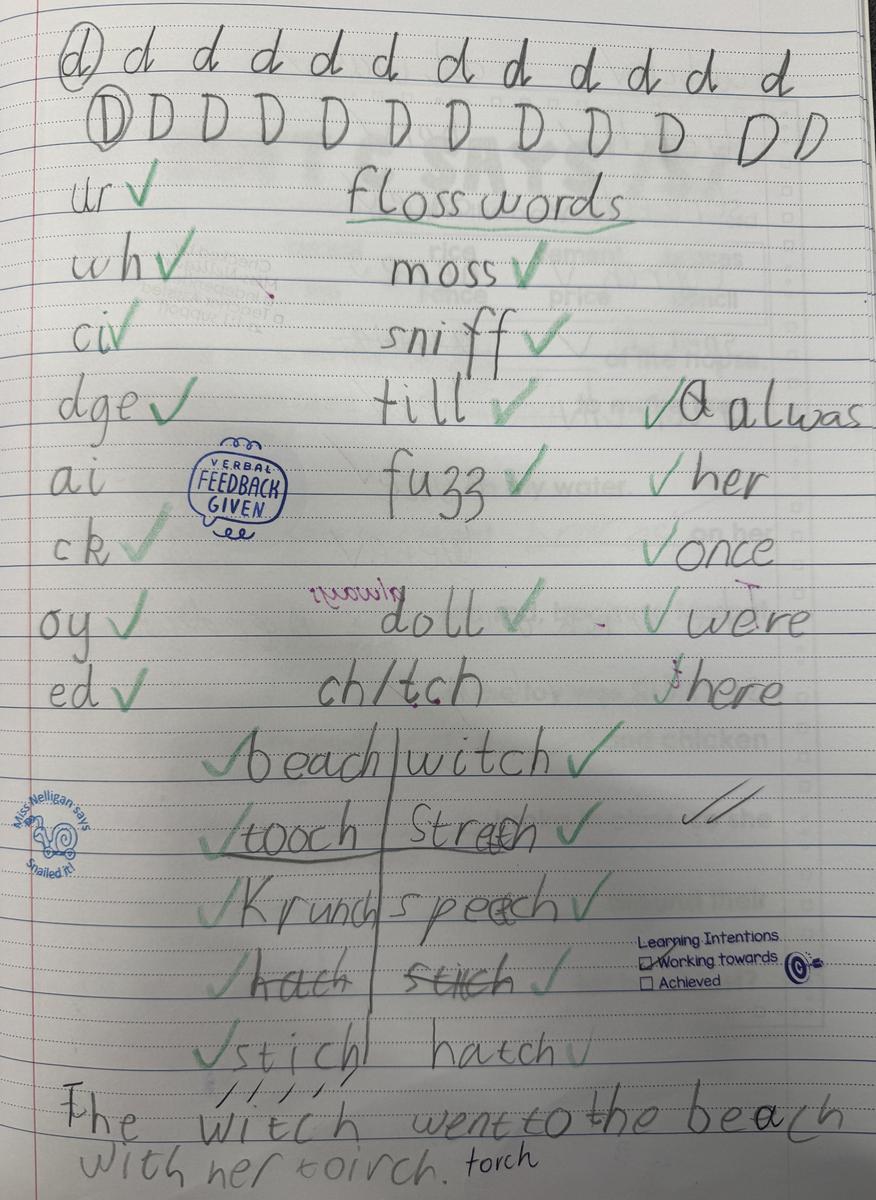 d d d d d d d d d d d d
D D D D D D D D D D D D
ur floss words
wh moss
ci sniff
dge till a alwas
ai VERBAL FEEDBACK GIVEN fuzz her
ck once
always
oy doll were
ed ch/tch there
beach witch
Miss Nelligan says Snailed it!
tooch
Krunch
Learning Intentions
hach stich Working towards
Achieved
stich hatch
The witch went to the beach
with her toirch. torch